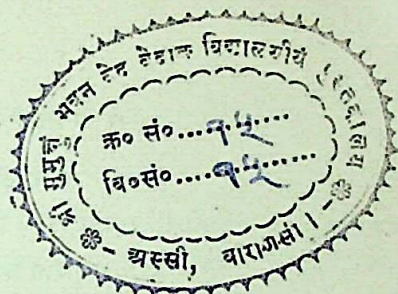 श्री मुमुक्षु भवन वेद वेदाङ्ग विद्यालयीय पुस्तकालय
क्र० सं०..... १५ .....
वि०सं०..... १५ .....
अस्सी, वाराणसी।